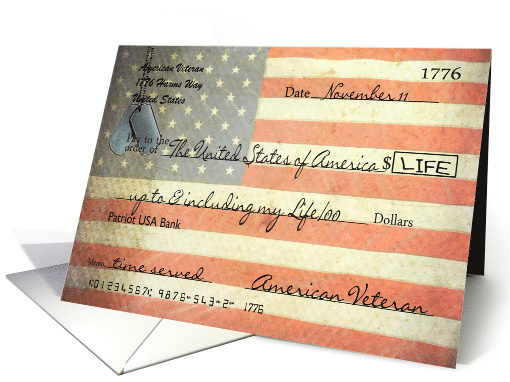 American Veteran
1776 Harms Way
United States
1776
Date November 11
Pay to the
order of The United States of America $ LIFE
up to & including my Life/00 Dollars
Patriot USA Bank
Memo time served American Veteran
⑆01234567⑆ 9876-543-2- 1776